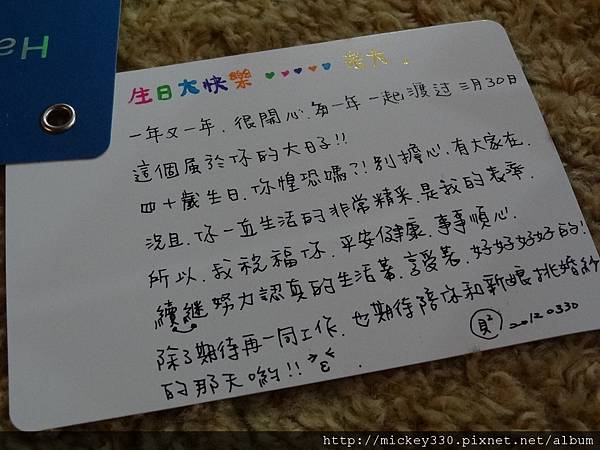 Ha
生日大快樂 ♥♥♥♥♥ 老大!
一年又一年,很開心,每一年一起渡过三月30日
這個屬於你的大日子!!
四十歲生日,你惶恐嗎?!別擔心,有大家在,
況且,你一直生活的非常精采,是我的表率,
所以,我祝福你,平安健康,事事順心,
續繼努力認真的生活著,享受著,好好好好的!
除了期待再一同工作,也期待陪你和新娘挑婚紗
的那天喲!! >ε<
貝² 20120330
http://mickey330.pixnet.net/album